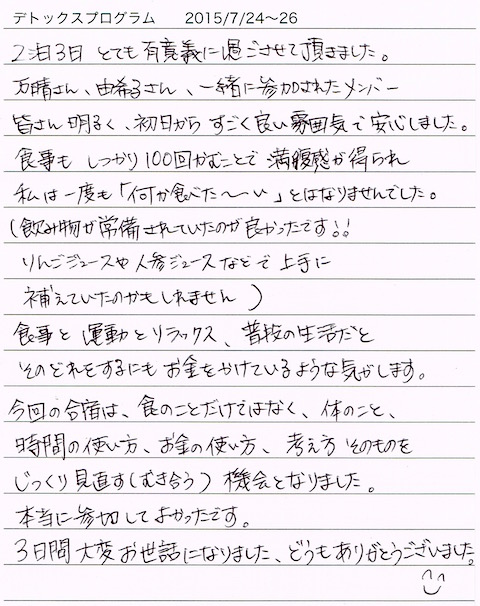 デトックスプログラム 2015/7/24〜26
2泊3日 とても有意義に過ごさせて頂きました。
万晴さん、由希子さん、一緒に参加されたメンバー
皆さん明るく、初日から すごく良い雰囲気で安心しました。
食事も しっかり100回かむことで 満腹感が得られ
私は一度も「何か食べた〜〜い」とはなりませんでした。
(飲み物が常備されていたのが良かったです!!
りんごジュースや人参ジュースなどで上手に
補えていたのかもしれません )
食事と運動とリラックス、普段の生活だと
そのどれをするにもお金をかけているような気がします。
今回の合宿は、食のことだけではなく、体のこと、
時間の使い方、お金の使い方、考え方そのものを
じっくり見直す(むき合う)機会となりました。
本当に参加してよかったです。
3日間大変お世話になりました、どうもありがとうございました。